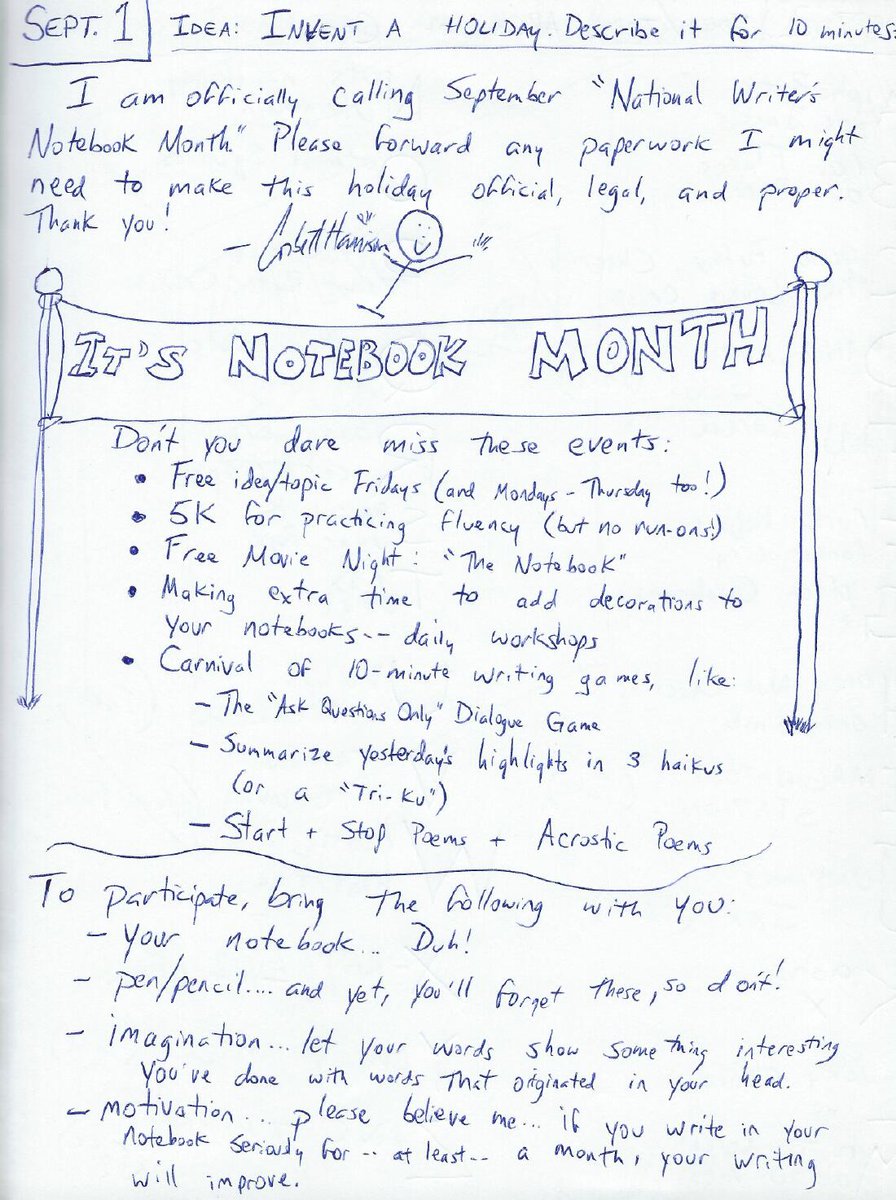 SEPT. 1 IDEA: INVENT A HOLIDAY. Describe it for 10 minutes.
I am officially calling September "National Writer's
Notebook Month." Please forward any paperwork I might
need to make this holiday official, legal, and proper.
Thank you!
— Corbett Harrison
IT'S NOTEBOOK MONTH
Don't you dare miss these events:
• Free idea/topic Fridays (and Mondays - Thursday too!)
• 5K for practicing fluency (but no run-ons!)
• Free Movie Night: "The Notebook"
• Making extra time to add decorations to
your notebooks -- daily workshops
• Carnival of 10-minute writing games, like:
- The "Ask Questions Only" Dialogue Game
- Summarize yesterday's highlights in 3 haikus
(or a "Tri-Ku")
- Start + Stop Poems + Acrostic Poems
To participate, bring the following with you:
- your notebook... Duh!
- pen/pencil.... and yet, you'll forget these, so don't!
- imagination... let your words show something interesting
you've done with words that originated in your head.
- motivation... please believe me... if you write in your
notebook seriously for -- at least -- a month, your writing
will improve.